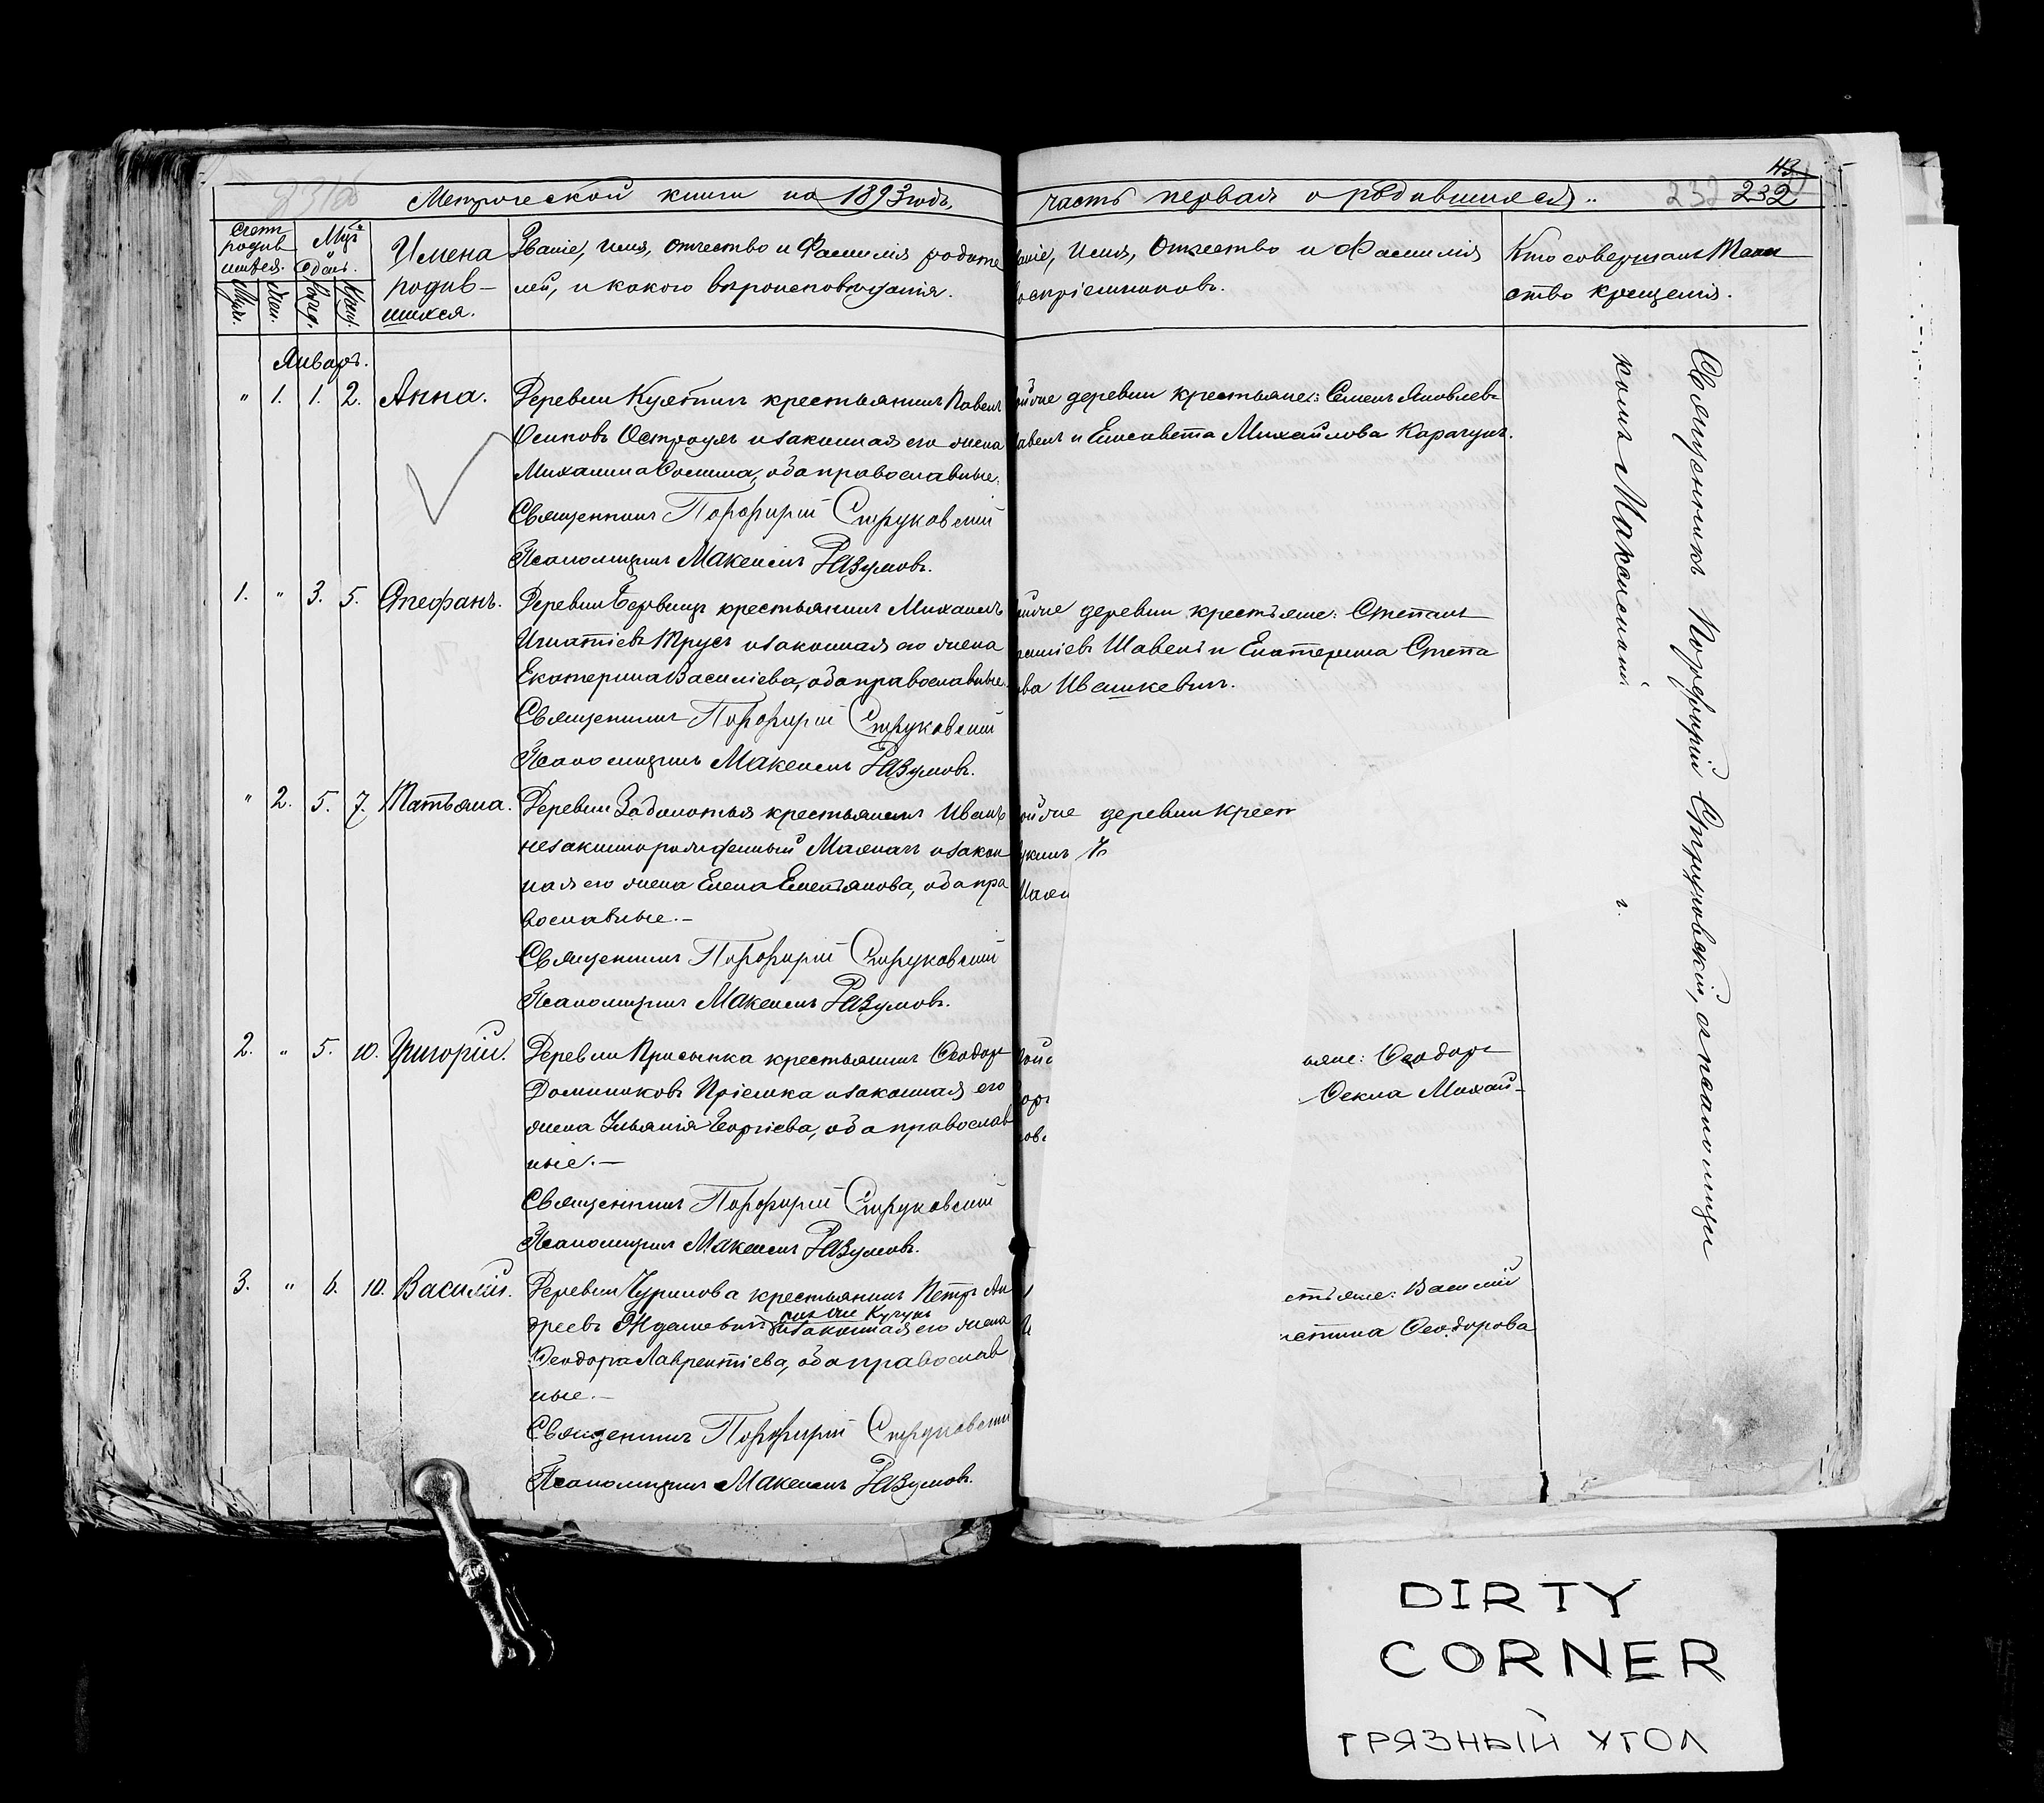 43
232
232
Метрической книги на 1893 годъ,
часть первая о родившихся.
Счетъ родив шихся.
Муж.
Жен.
Рожд.
Крещ.
Имена родив-
шихся.
Званіе, имя, отчество и Фамилія родите
лей, и какого вѣроисповѣданія.
Званіе, Имя, Отчество и Фамилія
воспріемниковъ.
Кто совершалъ Таин
ство крещенія.
Январь.
" 1. 1. 2. Анна.
Деревни крестьянинъ Павелъ
Осиповъ и законная его жена
оба православные.
Священникъ Порфирій Струковскій
Псаломщикъ Максимъ Разумовъ.
деревни крестьяне: Семенъ Яковлевъ
и Елисавета Михайлова Карачунъ.
1. " 3. 5. Стефанъ.
Деревни крестьянинъ Михаилъ
Игнатіевъ Трусъ и законная его жена
Екатерина Василіева, оба православные.
Священникъ Порфирій Струковскій
Псаломщикъ Максимъ Разумовъ.
деревни крестьяне: Степанъ
Шавель и Екатерина Степа
ва Ивашкевичъ.
" 2. 5. 7. Татьяна.
Деревни Заболотья крестьянинъ Иванъ
незаконнорожденный и закон
ная его жена Елена Емельянова, оба пра
вославные.-
Священникъ Порфирій Струковскій
Псаломщикъ Максимъ Разумовъ.
деревни крест
2. " 5. 10. Григорій.
Деревни Присынка крестьянинъ Ѳеодоръ
Доминиковъ и законная его
жена Ульянія Георгіева, оба православ
ные.-
Священникъ Порфирій Струковскій
Псаломщикъ Максимъ Разумовъ.
ьяне: Ѳеодоръ
Ѳекла Михай-
3. " 6. 10. Василій.
Деревни Чурилова крестьянинъ Петръ Ан
дреевъ Ждановичъ онъ же Кучукъ
и законная его жена
Ѳеодора Лаврентіева, оба православ
ные.-
Священникъ Порфирій Струковскій
Псаломщикъ Максимъ Разумовъ.
стьяне: Василій
Ѳеодорова
Священникъ Порфирій Струковскій, съ псаломщи
комъ Максимомъ
DIRTY
CORNER
ГРЯЗНЫЙ УГОЛ